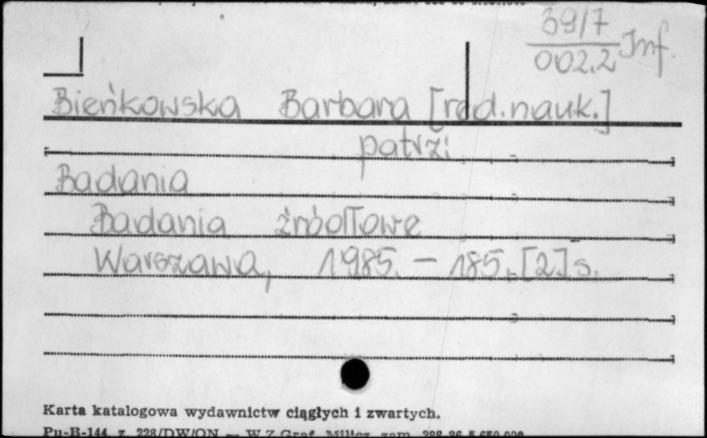 39/7
002.2 Inf.
Bieńkowska Barbara [red.nauk.]
patrz:
Badania
Badania źródłowe
Warszawa, 1985. - 185, [2] s.
Karta katalogowa wydawnictw ciągłych i zwartych.
Pu-B-144 z. 228/DW/ON — W.Z.Graf. Milicz zam.